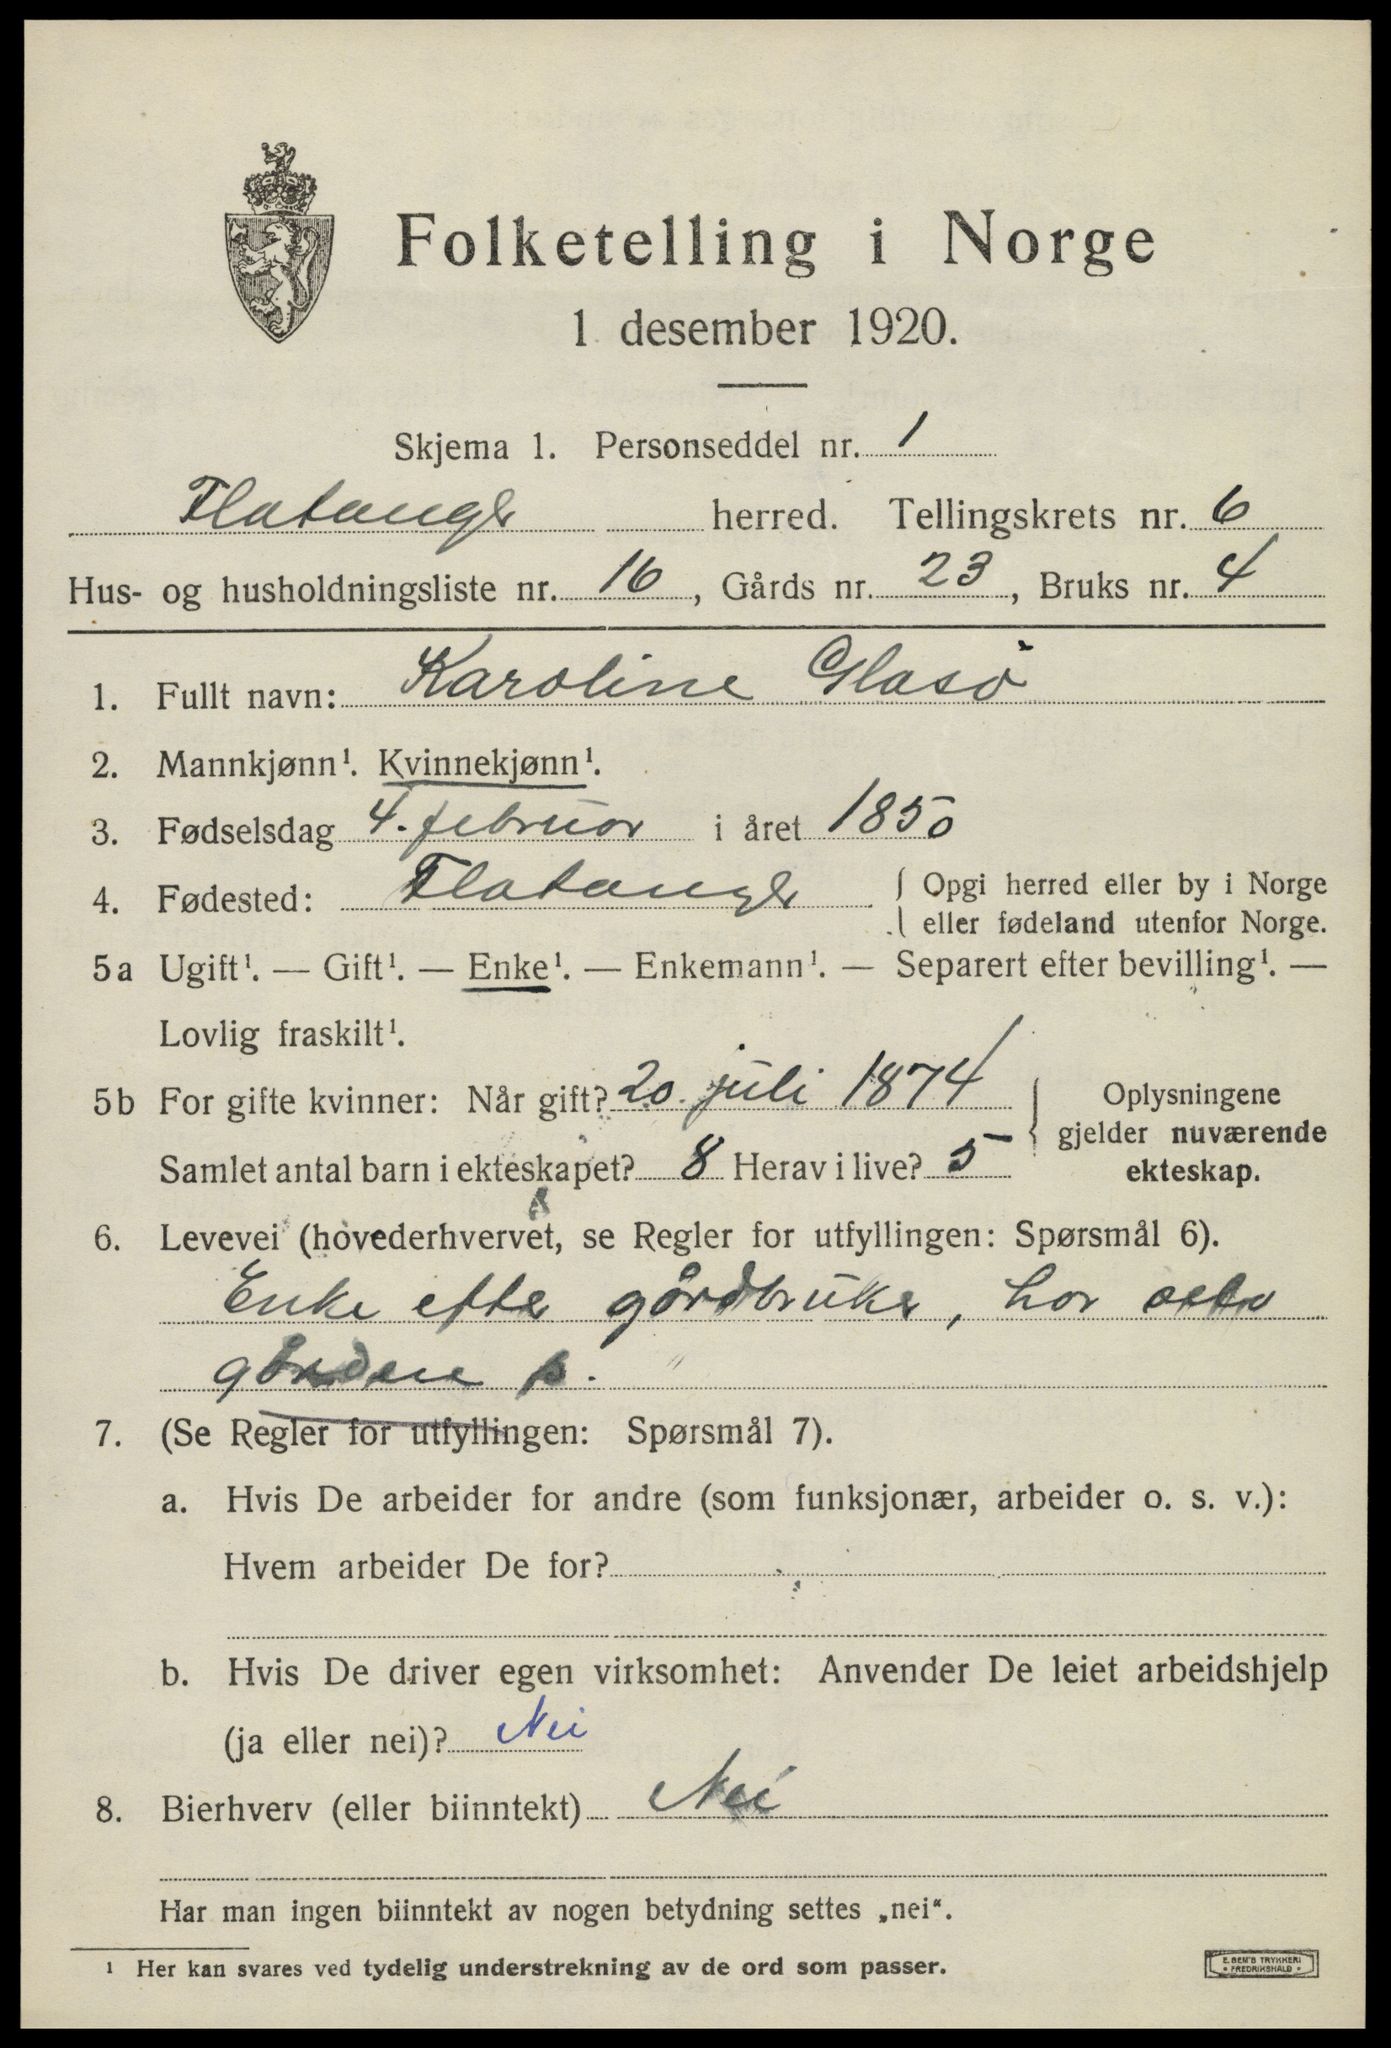 Folketelling i Norge
1 desember 1920.
Skjema 1. Personseddel nr. 1
Flatanger herred. Tellingskrets nr. 6
Hus- og husholdningsliste nr. 16, Gårds nr. 23, Bruks nr. 4
1. Fullt navn: Karoline Glasø
2. Mannkjønn¹. Kvinnekjønn¹.
3. Fødselsdag 4. februar i året 1850
4. Fødested: Flatanger { Opgi herred eller by i Norge
eller fødeland utenfor Norge.
5a Ugift¹. — Gift¹. — Enke¹. — Enkemann¹. — Separert efter bevilling¹. —
Lovlig fraskilt¹.
5b For gifte kvinner: Når gift? 20. juli 1874 { Oplysningene
gjelder nuværende
ekteskap.
Samlet antal barn i ekteskapet? 8 Herav i live? 5
6. Levevei (hovederhvervet, se Regler for utfyllingen: Spørsmål 6).
Enke efter gårdbruker, har
7. (Se Regler for utfyllingen: Spørsmål 7).
a. Hvis De arbeider for andre (som funksjonær, arbeider o. s. v.):
Hvem arbeider De for?
b. Hvis De driver egen virksomhet: Anvender De leiet arbeidshjelp
(ja eller nei)? Nei
8. Bierhverv (eller biinntekt) Nei
Har man ingen biinntekt av nogen betydning settes „nei“.
¹ Her kan svares ved tydelig understrekning av de ord som passer.
E. SEM'S TRYKKERI
• FREDRIKSHALD •